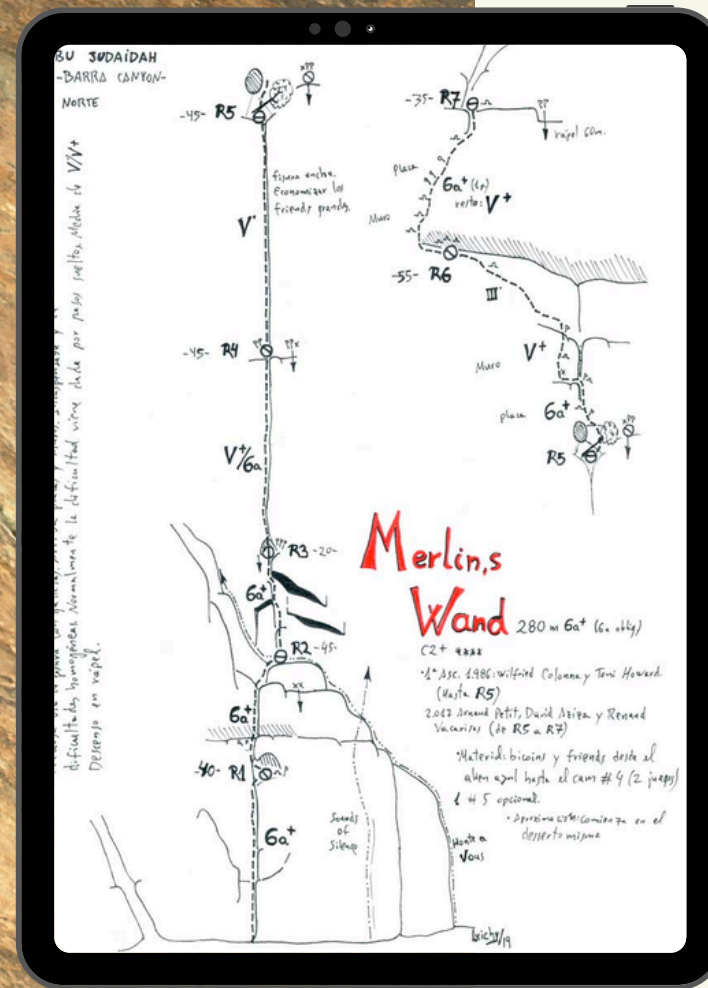 BU JUDAIDAH
-BARRA CANYON-
NORTE
dificultades homogéneas. Normalmente la dificultad viene dada por pasos sueltos. Media de V/V+
Descenso en rápel.
-45- R5
fisura ancha.
Economizar los
friends grandes.
V
-45- R4
V+/6a
R3 -20-
6a+
R2 -45-
6a+
-40- R1
6a+
Sounds
of
Silence
-35- R7
rápel 60m.
placa
6a+
resto: V+
Muro
-55- R6
III
V+
Muro
placa 6a+
R5
Merlin,s
Wand 280 m 6a+ (6a oblig)
C2+ ****
1ª Asc. 1.986: Wilfried Colonna y Toni Howard
(Hasta R5)
2.017 Arnaud Petit, David y Renaud
(de R5 a R7)
Material: bicoins y friends desde el
alien azul hasta el cam #4 (2 juegos)
1 #5 opcional.
comienza en el
desierto mismo
Vous